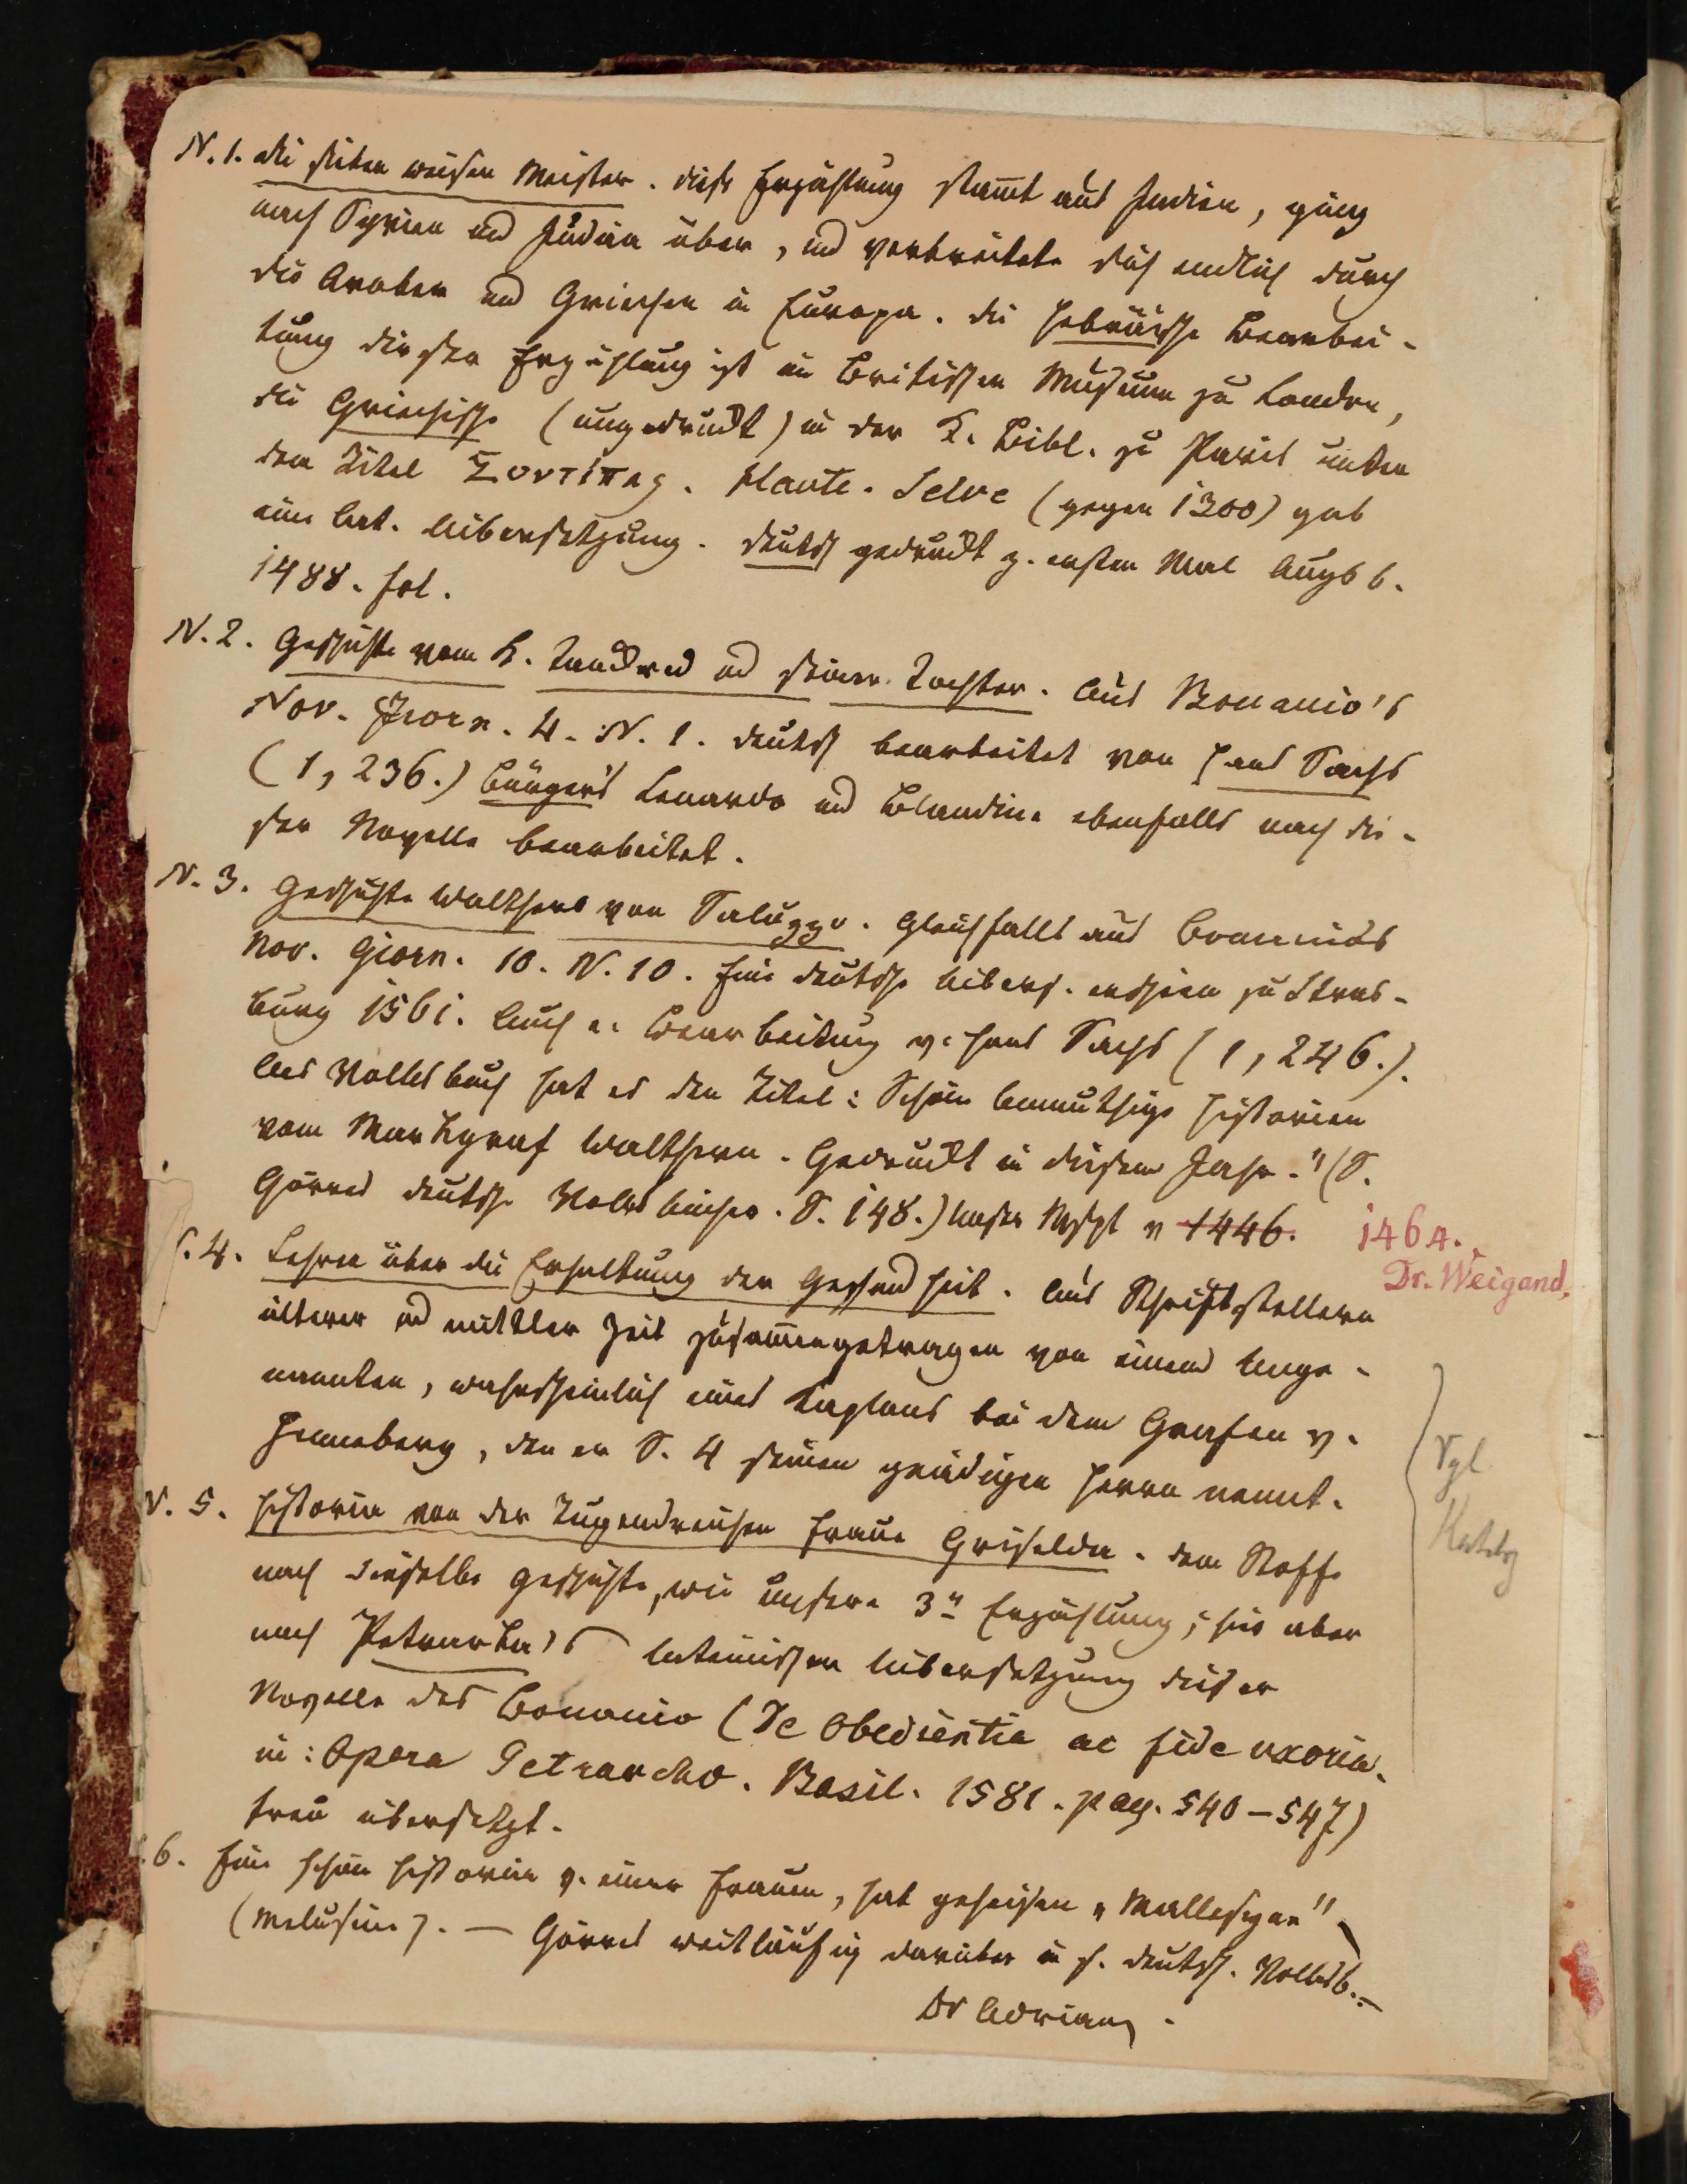 N. 1. Die sieben weisen Meister. Diese Erzählung stam̄t aus Indien, ging
nach Syrien und Judäa über, und verbreitete sich endlich durch
die Araber und Griechen in Europa. Die hebräische Bearbei-
tung dieser Erzählung ist im Britischen Museum zu London,
die Griechische (ungedruckt) in der K. Bibl. zu Paris unter
dem Titel Συντίπας. Haute-Selve (gegen 1300) gab
eine lat. Uibersetzung. Deutsch gedruckt z. ersten Mal Augsb.
1488. fol.
N. 2. Geschichte vom K. Tancred und seiner Tochter. Aus Boccaccio's
Nov. Giorn. 4. N. 1. Deutsch bearbeitet von Hans Sachs
(1, 236.) Bürger's Lenardo und Blandine ebenfalls nach die-
ser Novelle bearbeitet.
N. 3. Geschichte Walthers von Saluzzo. Gleichfalls aus Boccaccios
Nov. Giorn. 10. N. 10. Eine deutsche Uibers. erschien zu Stras-
burg 1561. Auch e. Bearbeitung v. Hans Sachs (1, 246.).
Als Volksbuch hat es den Titel: Schöne anmuthige Historien
vom Markgraf Walthern. Gedruckt in diesem Jahr." (S.
Görres deutsche Volksbücher. S. 148.) Unser Mspt v 1446. 1464.
Dr. Weigand.
N. 4. Lehren über die Erhaltung der Gesundheit. Aus Schriftstellern
älterer und mittler Zeit zusam̄engetragen von einem Unge-
nannten, wahrscheinlich eines Kaplans bei dem Grafen v.
Henneberg, den er S. 4 seinen gnädigen Herrn nennt.
Vgl.
Katalog
N. 5. Historie von der Tugendreichen Fraue Griselda. Dem Stoffe
nach dieselbe Geschichte, wie unsere 3e Erzählung; hier aber
nach Petrarka's lateinischer Uibersetzung dieser
Novelle des Boccaccio (De Obedientia ac fide uxoria.
in: Opera Petrarcho. Basil. 1581. pag. 540–547)
treu übersetzt.
6. Eine schöne Historie v. einer Frauen, hat geheisen „Mallesyne"
(Melusine). — Görres weitläufig darüber in s. deutsch. Volksb. –
Dr Adrian.